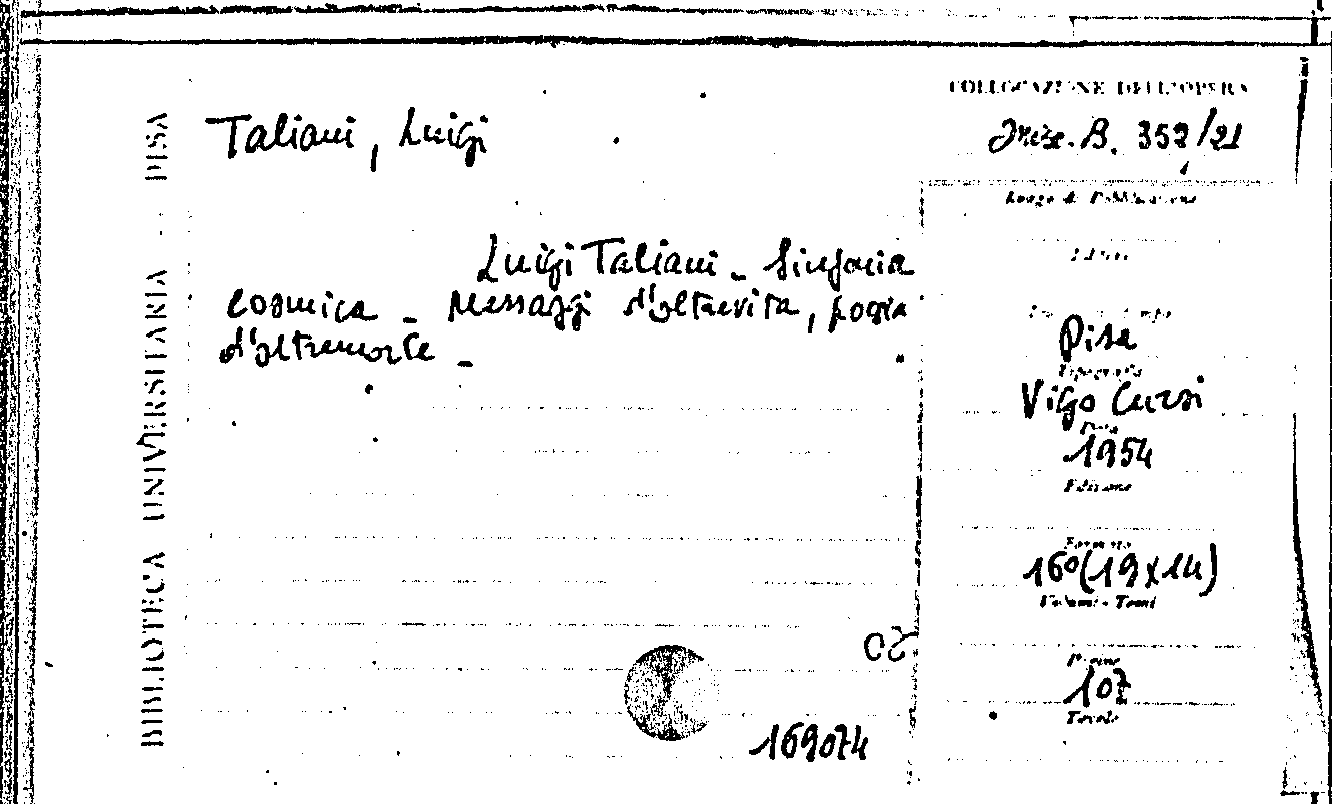 BIBLIOTECA UNIVERSITARIA - PISA
Taliani, Luigi
Luigi Taliani - Sinfonia
cosmica - Messaggi d'oltrevita, poesia
d'oltremorte -
20
169074
COLLOCAZIONE DELL'OPERA
Misc. B. 352/21
Luogo di Pubblicazione
Editore
Pisa
Tipografia
Vigo Cursi
Data
1954
Edizione
Formato
16º(19x14)
Volumi - Tomi
Pagine
107
Tavole